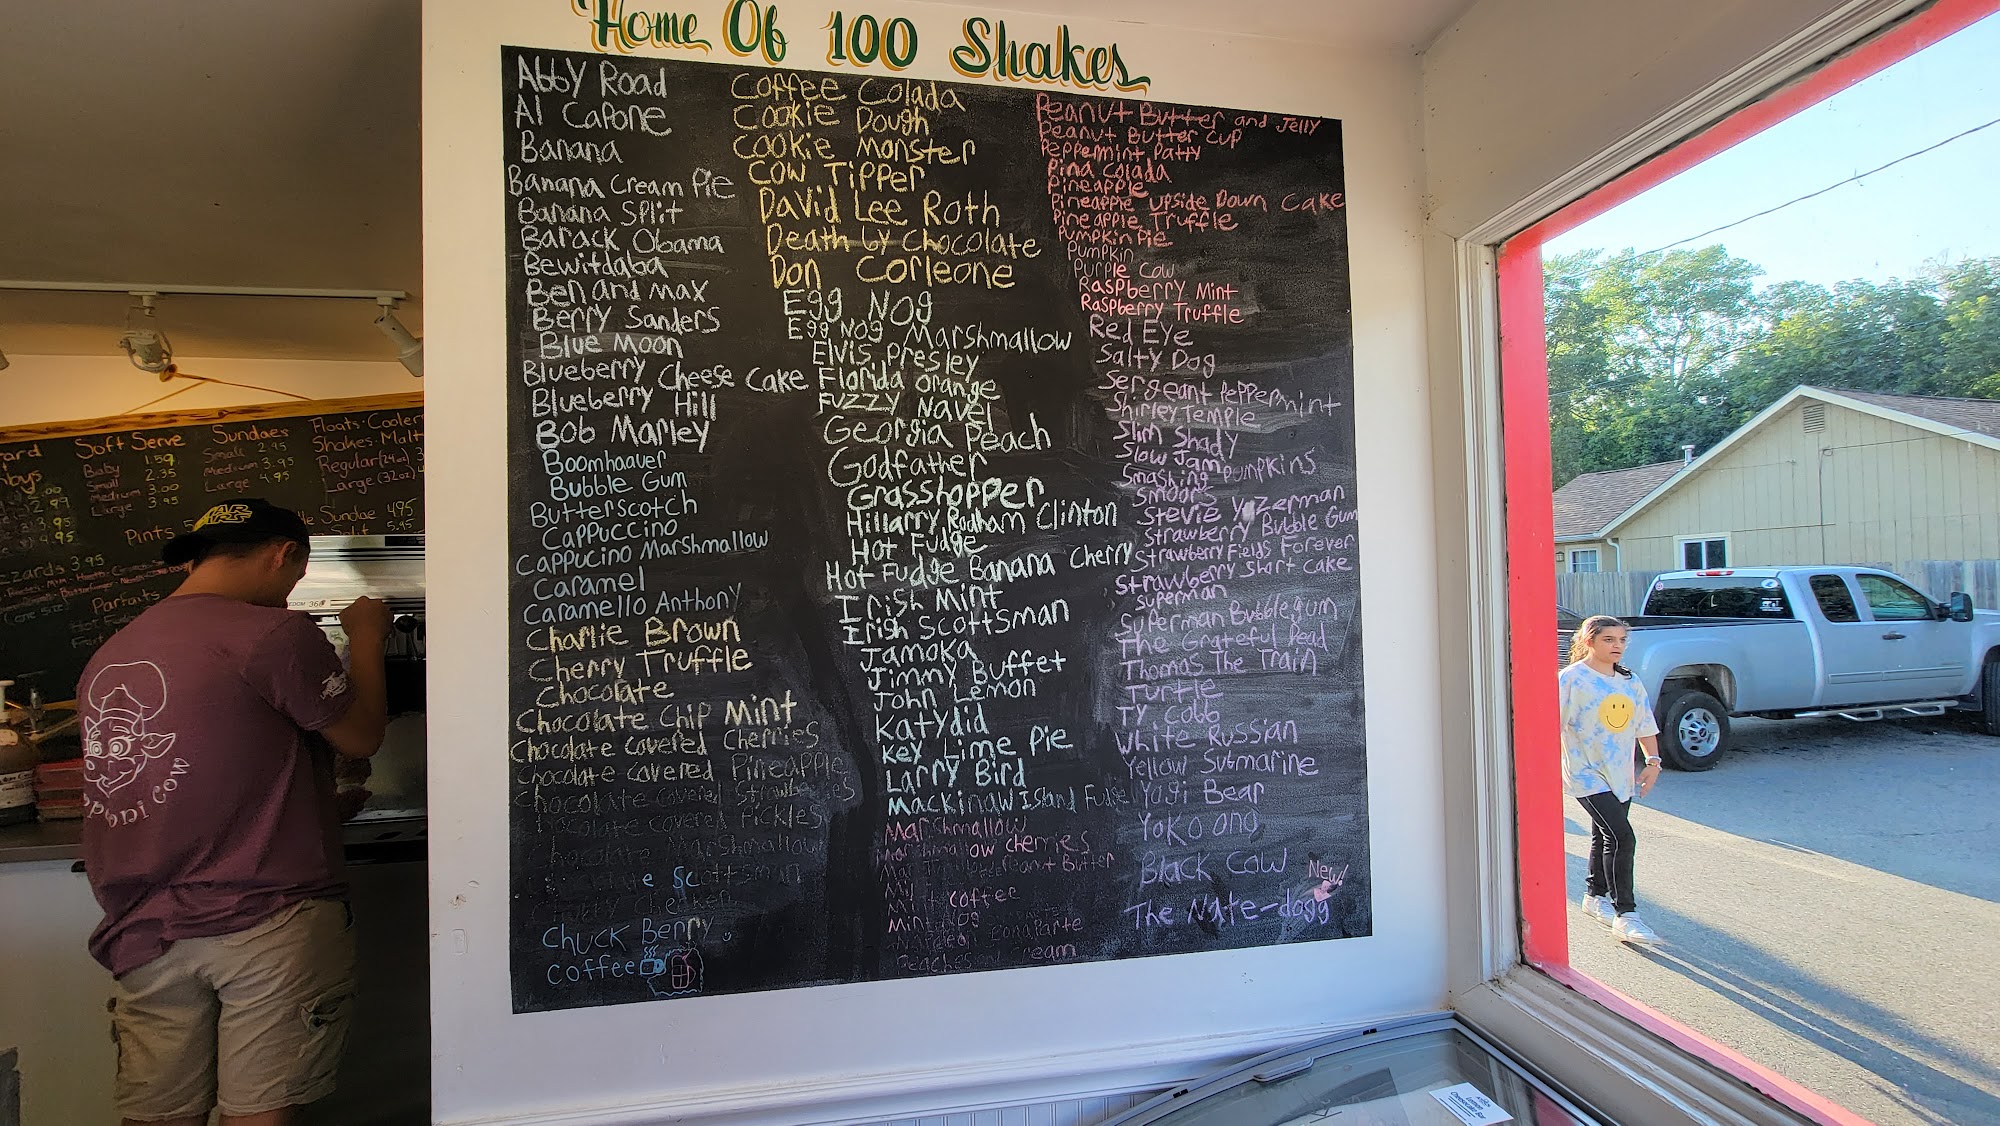 Home Of 100 Shakes
Abby Road
Al Capone
Banana
Banana Cream Pie
Banana Split
Barack Obama
Bewitdaba
Ben and Max
Berry Sanders
Blue Moon
Blueberry Cheese Cake
Blueberry Hill
Bob Marley
Boomhaaver
Bubble Gum
Butterscotch
Cappuccino
Cappucino Marshmallow
Caramel
Caramello Anthony
Charlie Brown
Cherry Truffle
Chocolate
Chocolate Chip Mint
Chocolate covered Cherries
Chocolate covered Pineapple
Chocolate covered Strawberries
Chocolate covered Pickles
Chocolate Marshmallow
Chocolate Scottsman
Chubby Checker
Chuck Berry
Coffee
Coffee Colada
Cookie Dough
Cookie Monster
Cow Tipper
David Lee Roth
Death by Chocolate
Don Corleone
Egg Nog
Egg Nog Marshmallow
Elvis Presley
Florida Orange
Fuzzy Navel
Georgia Peach
Godfather
Grasshopper
Hillarry Rodham Clinton
Hot Fudge
Hot Fudge Banana Cherry
Irish Mint
Irish Scottsman
Jamoka
Jimmy Buffet
John Lemon
Katydid
Key Lime Pie
Larry Bird
Mackinaw Island Fudge
Marshmallow
Marshmallow Cherries
Peanut Butter
Mint Coffee
Mint
Napoleon Bonaparte
Peaches and Cream
Peanut Butter and Jelly
Peanut Butter Cup
Peppermint Patty
Pina Colada
Pineapple
Pineapple Upside Down Cake
Pineapple Truffle
Pumpkin Pie
Pumpkin
Purple Cow
Raspberry Mint
Raspberry Truffle
Red Eye
Salty Dog
Sergeant Peppermint
Shirley Temple
Slim Shady
Slow Jam
Smashing Pumpkins
Smoors
Stevie Yozerman
Strawberry Bubble Gum
Strawberry Fields Forever
Strawberry Short Cake
Superman
Superman Bubblegum
The Grateful Dead
Thomas The Train
Turtle
Ty Cobb
White Russian
Yellow Submarine
Yogi Bear
Yoko Ono
Black Cow
New!
The Nate-dogg
Soft Serve
Baby 1.59
Small 2.35
Medium 3.00
Large 3.95
Pints
Sundaes
Small 2.95
Medium 3.95
Large 4.95
Floats·Cooler
Shakes·Malt
Regular (24oz)
Large (32oz)
Sundae 4.95
Split 5.95
3.95
Parfaits
Hot